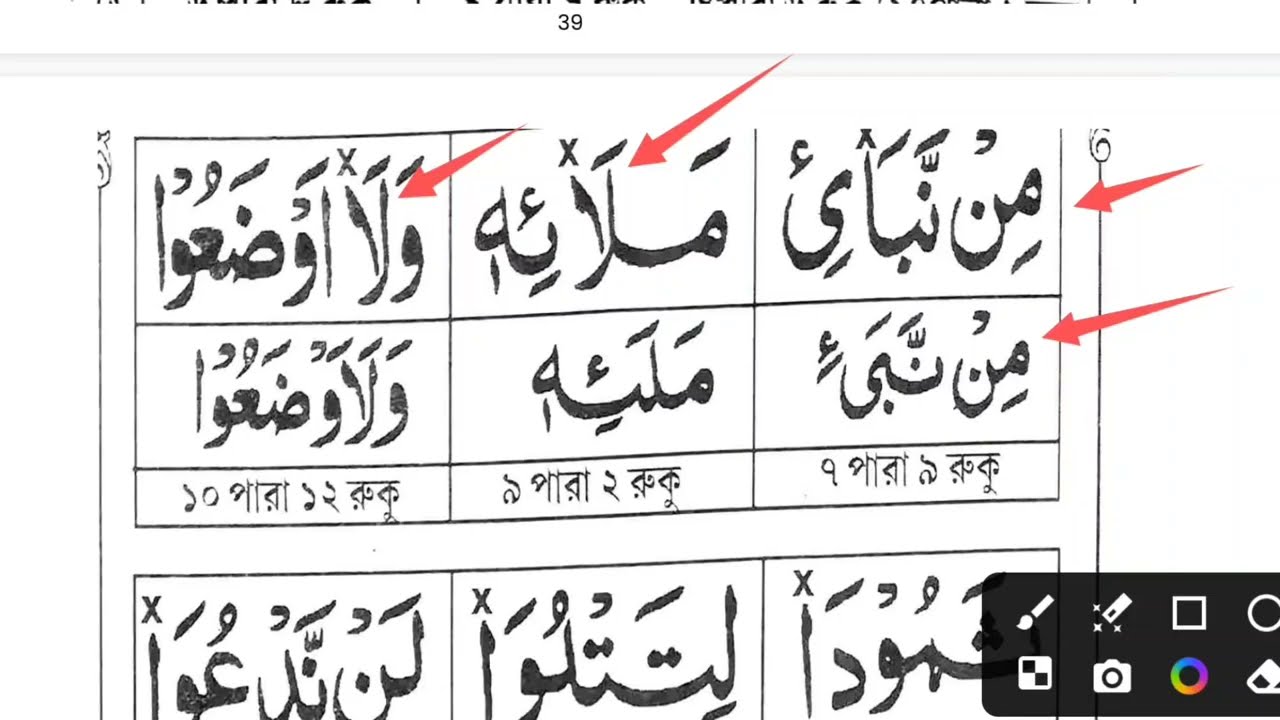 39
مِنْ نَّبَاَیِٔ
مَلَا۠ئِهٖ
وَلَا اَوْضَعُوْا
مِنْ نَّبَیِٔ
مَلَئِهٖ
وَلَاَوْضَعُوْا
৭ পারা ৯ রুকু
৯ পারা ২ রুকু
১০ পারা ১২ রুকু
لِتَتْلُوَا
لَنْ نَّدْعُوَا